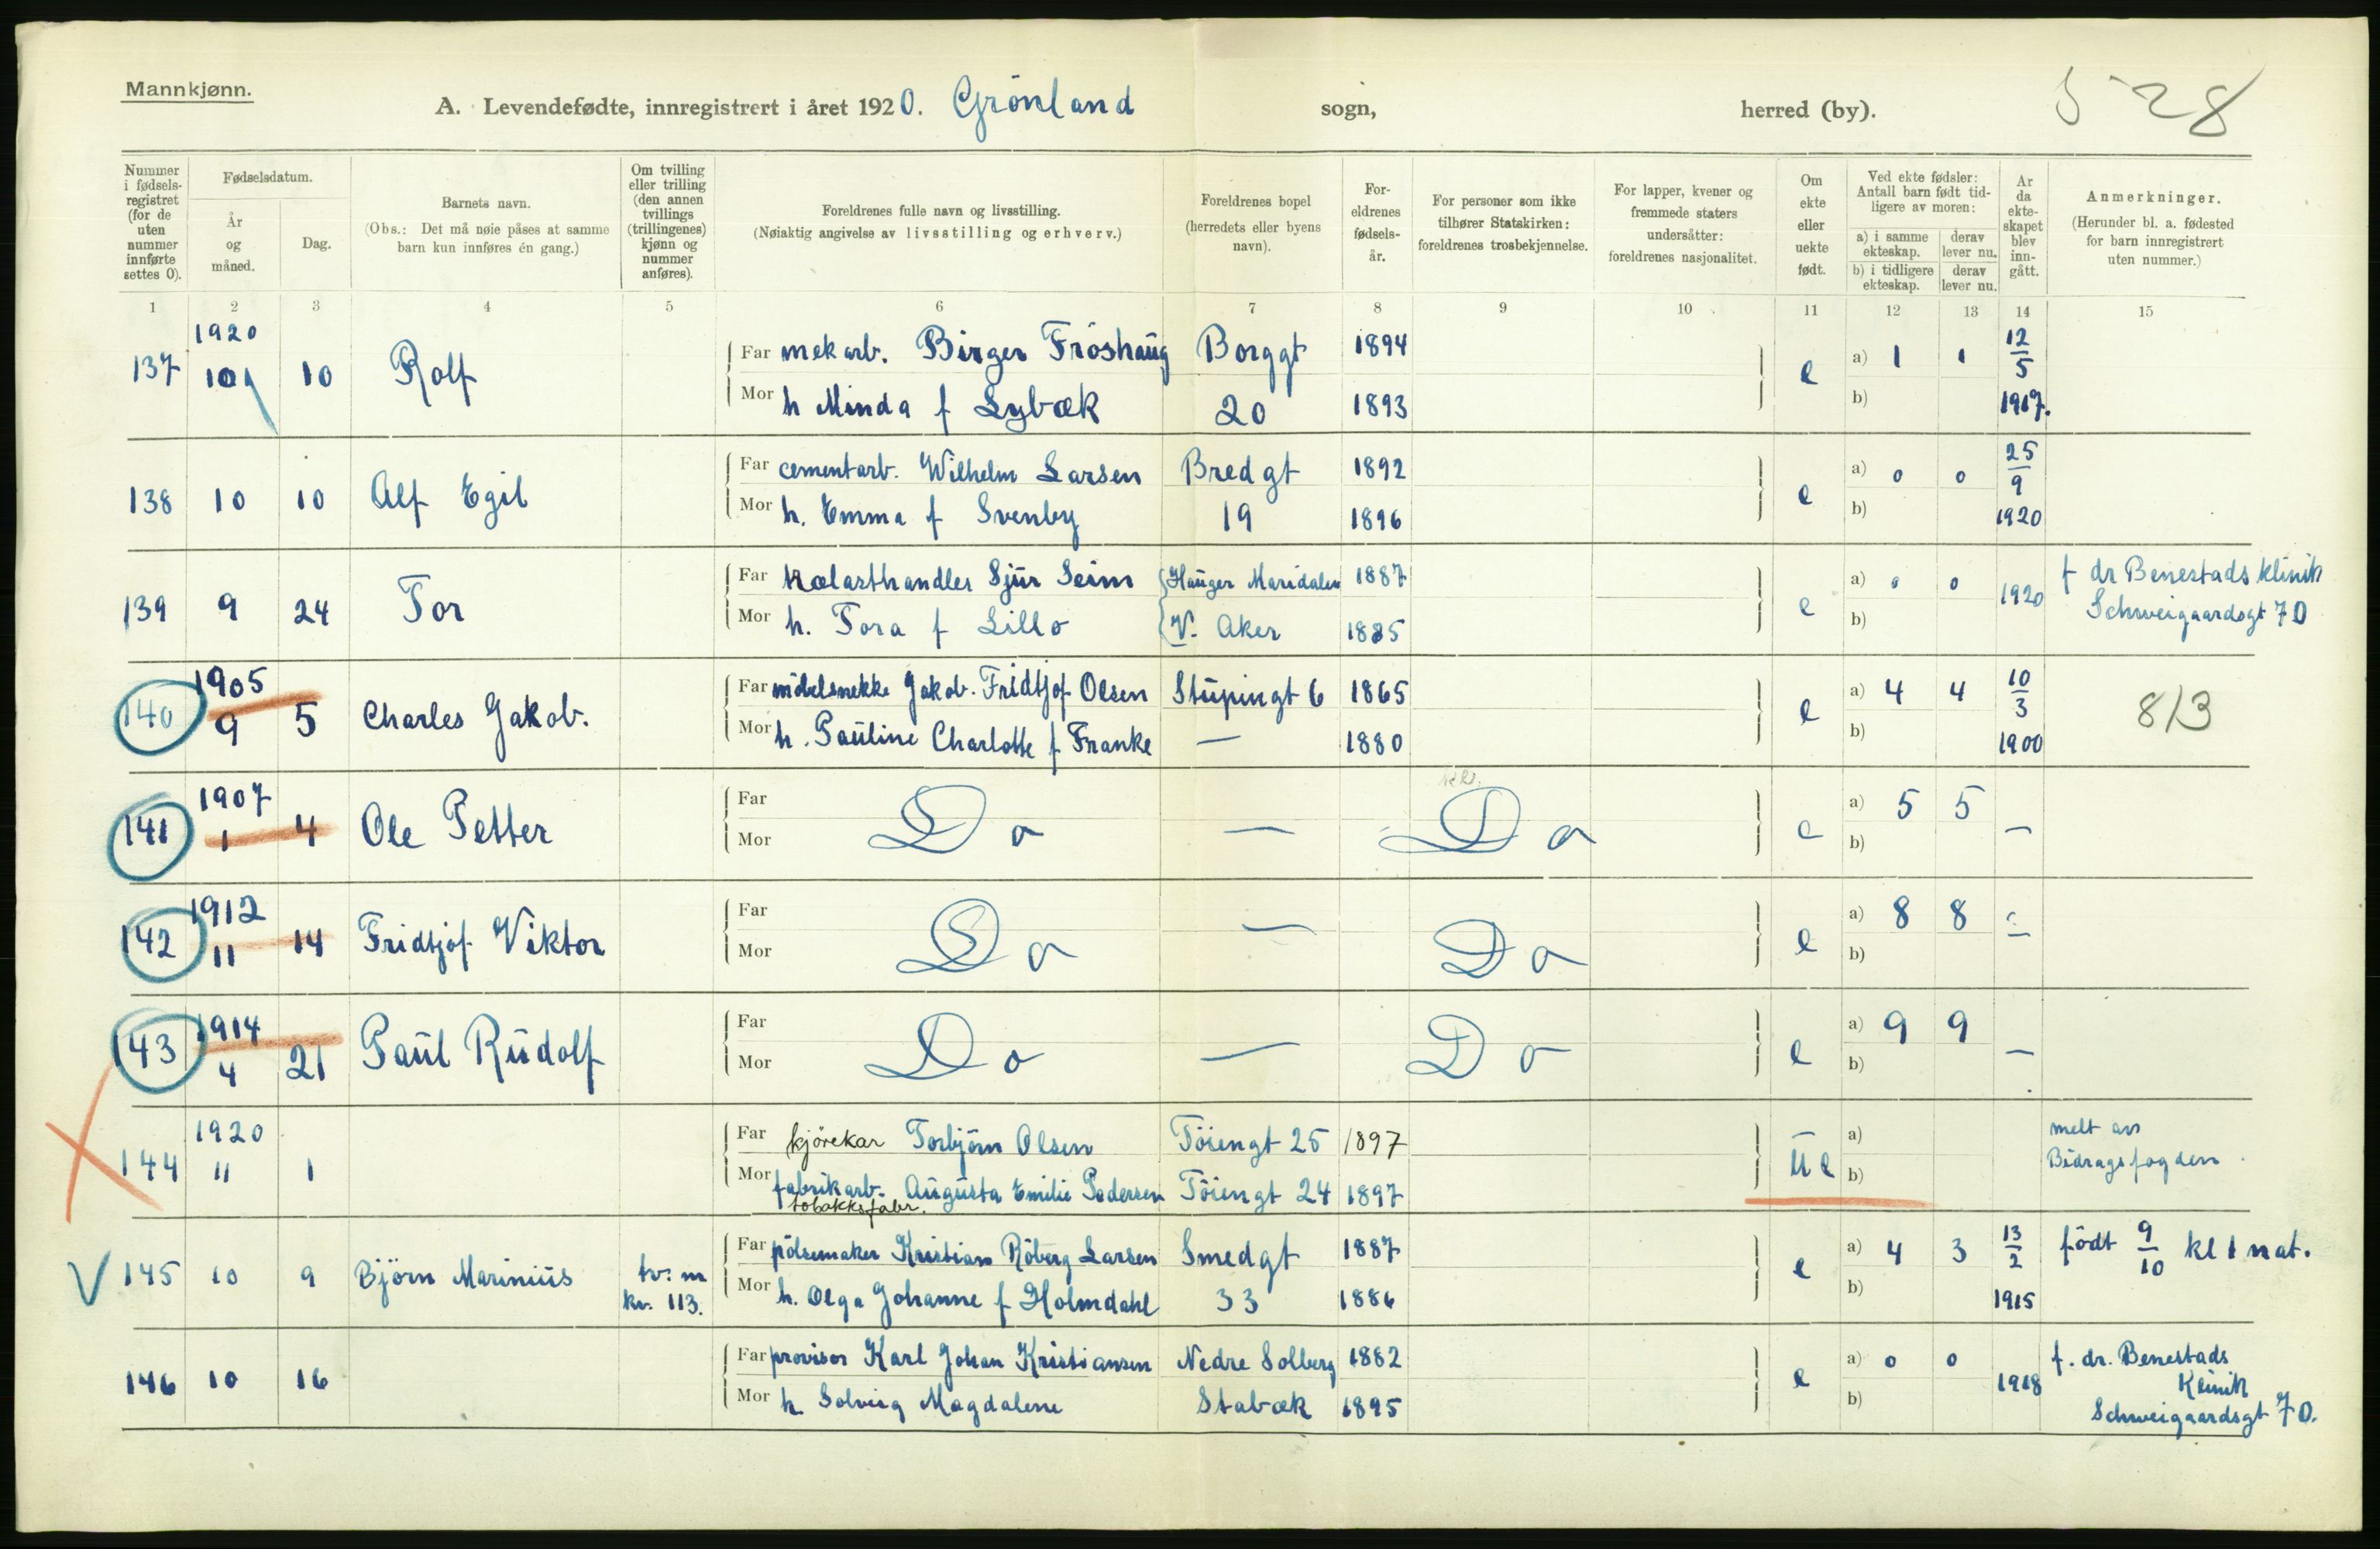 Mannkjønn.
A. Levendefødte, innregistrert i året 1920. Grönland sogn, herred (by). 528
Nummer i fødselsregistret (for de uten nummer innførte settes 0).
Fødselsdatum.
År og måned.
Dag.
Barnets navn.
(Obs.: Det må nøie påses at samme barn kun innføres én gang.)
Om tvilling eller trilling (den annen tvillings (trillingenes) kjønn og nummer anføres).
Foreldrenes fulle navn og livsstilling.
(Nøiaktig angivelse av livsstilling og erhverv.)
Foreldrenes bopel
(herredets eller byens navn).
Foreldrenes fødselsår.
For personer som ikke tilhører Statskirken: foreldrenes trosbekjennelse.
For lapper, kvener og fremmede staters undersåtter: foreldrenes nasjonalitet.
Om ekte eller uekte født.
Ved ekte fødsler: Antall barn født tidligere av moren:
a) i samme ekteskap. derav lever nu.
b) i tidligere ekteskap. derav lever nu.
År da ekteskapet blev inngått.
Anmerkninger.
(Herunder bl. a. fødested for barn innregistrert uten nummer.)
1 2 3 4 5 6 7 8 9 10 11 12 13 14 15
137 1920 10 10 Rolf
Far mek arb. Birger Fröshaug Borggt 1894 e a) 1 1 12/5
Mor h Minda f Lybæk 20 1893 b) 1917.
138 10 10 Alf Egil
Far cementarb. Wilhelm Larsen Bredgt 1892 e a) 0 0 25/9
Mor h. Emma f Svenby 19 1896 b) 1920
139 9 24 Tor
Far Sjur Seim Hauger Maridalen 1887 e a) 0 0 1920 f dr Benestads klinik
Mor h. Tora f Lillo V. Aker 1885 b) Schweigaardsgt 70
140 1905 9 5 Charles Jakob.
Far möbelsnekke Jakob Fridtjof Olsen Stupingt 6 1865 e a) 4 4 10/3 813
Mor h. Pauline Charlotte f Franke — 1880 b) 1900
141 1907 1 4 Ole Petter
Far Do — Do e a) 5 5 —
Mor b)
142 1912 11 14 Fridtjof Viktor
Far Do — Do e a) 8 8 —
Mor b)
143 1914 4 21 Paul Rudolf
Far Do — Do e a) 9 9 —
Mor b)
144 1920 11 1
Far kjörekar Torbjörn Olsen Töiengt 25 1897 ue a) melt av
Mor fabrikarb. Augusta Emilie Pedersen Töiengt 24 1897 b) Bidragsfogden
tobakksfabr.
145 10 9 Björn Marinius tv. m kv. 113.
Far pölsemaker Kristian Röberg Larsen Smedgt 1887 e a) 4 3 13/2 födt 9/10 kl 1 nat.
Mor h. Olga Johanne f Holmdahl 33 1886 b) 1915
146 10 16
Far provisor Karl Johan Kristiansen Nedre Solberg 1882 e a) 0 0 1918 f. dr. Benestads Klinik
Mor h Solveig Magdalene Stabæk 1895 b) Schweigaardsgt 70.